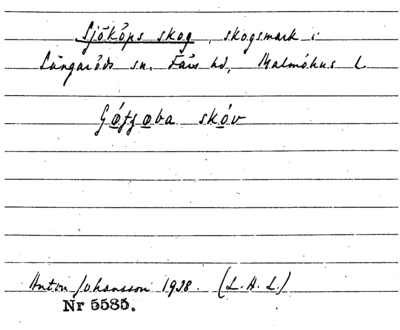 Sjököps skog, skogsmark i
Långaröds sn. Färs hd, Malmöhus l.
skóv
Anton Johansson 1938. (L.H.L.)
Nr 5585.